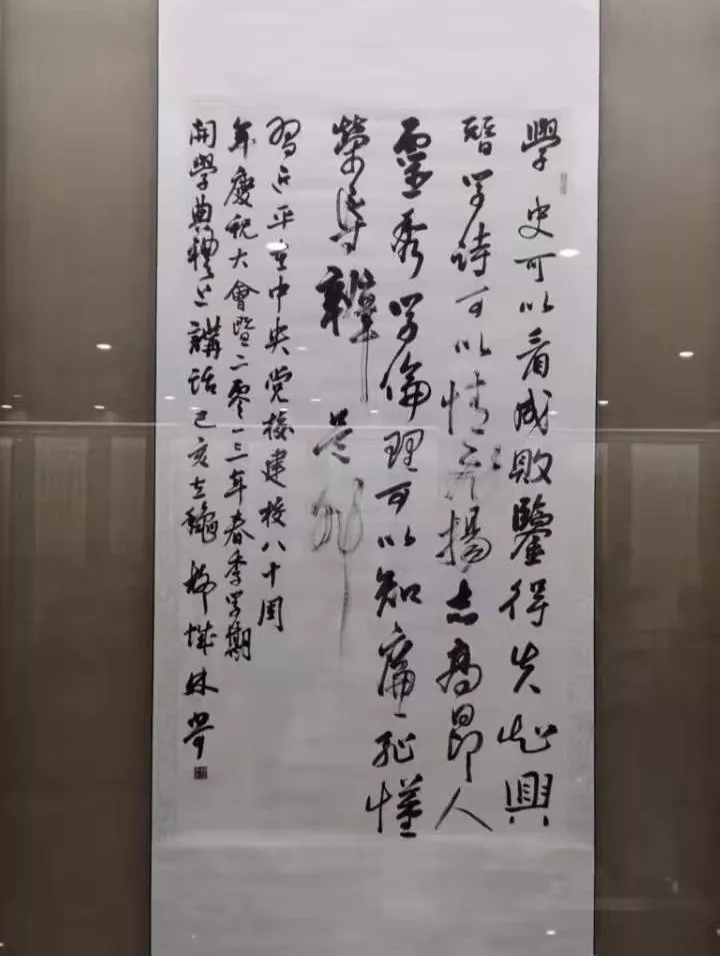 學史可以看成敗鑒得失知興
替学詩可以情飛揚志高昂人
靈秀学倫理可以知廉耻懂
榮辱辨是非
習近平在中央党校建校八十周
年慶祝大會暨二零一三年春季学期
開學典禮上講話己亥立龝